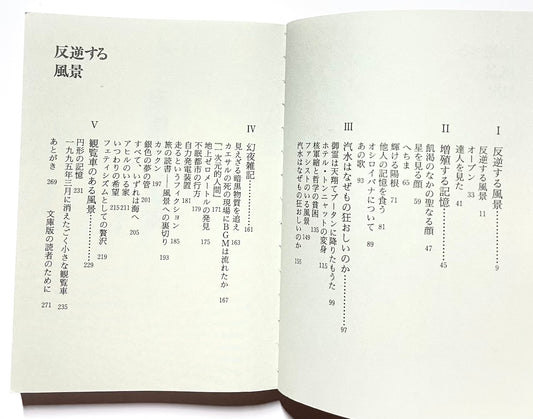 反逆する
風景
I 反逆する風景………9
反逆する風景 11
オープン 33
達人を見た 41
II 増殖する記憶………45
飢渇のなかの聖なる顔 47
星を見る顔 59
へちま 65
輝ける陽根 71
他人の記憶を食う 81
オシロイバナについて 89
あの歌 93
III 汽水はなぜもの狂おしいのか………97
御霊は天翔てアータンに降りたもうた 99
ホテル・トンニャットの変身 115
核軍縮と哲学の貧困 135
ファシストのいる風景 149
汽水はなぜもの狂おしいのか 155
IV 幻夜雑記………161
見えざる暗黒物質を追え 163
カエサルの死の現場にBGMは流れたか 167
「一次元的人間」 171
地上ゼロメートルの発見 175
不眠都市の行方 179
自力発電装置 181
走るというフィクション 185
旅の読書――風景への裏切り 193
カックン 197
銀色の夢の管 201
すべて、いずれは海へ 205
アヒルのいる家 211
いつわりの希望 215
フェティシズムとしての贅沢 219
V 観覧車のある風景………229
円形の記憶 231
一九九五年三月に消えたごく小さな観覧車 235
あとがき 269
文庫版の読者のために 271